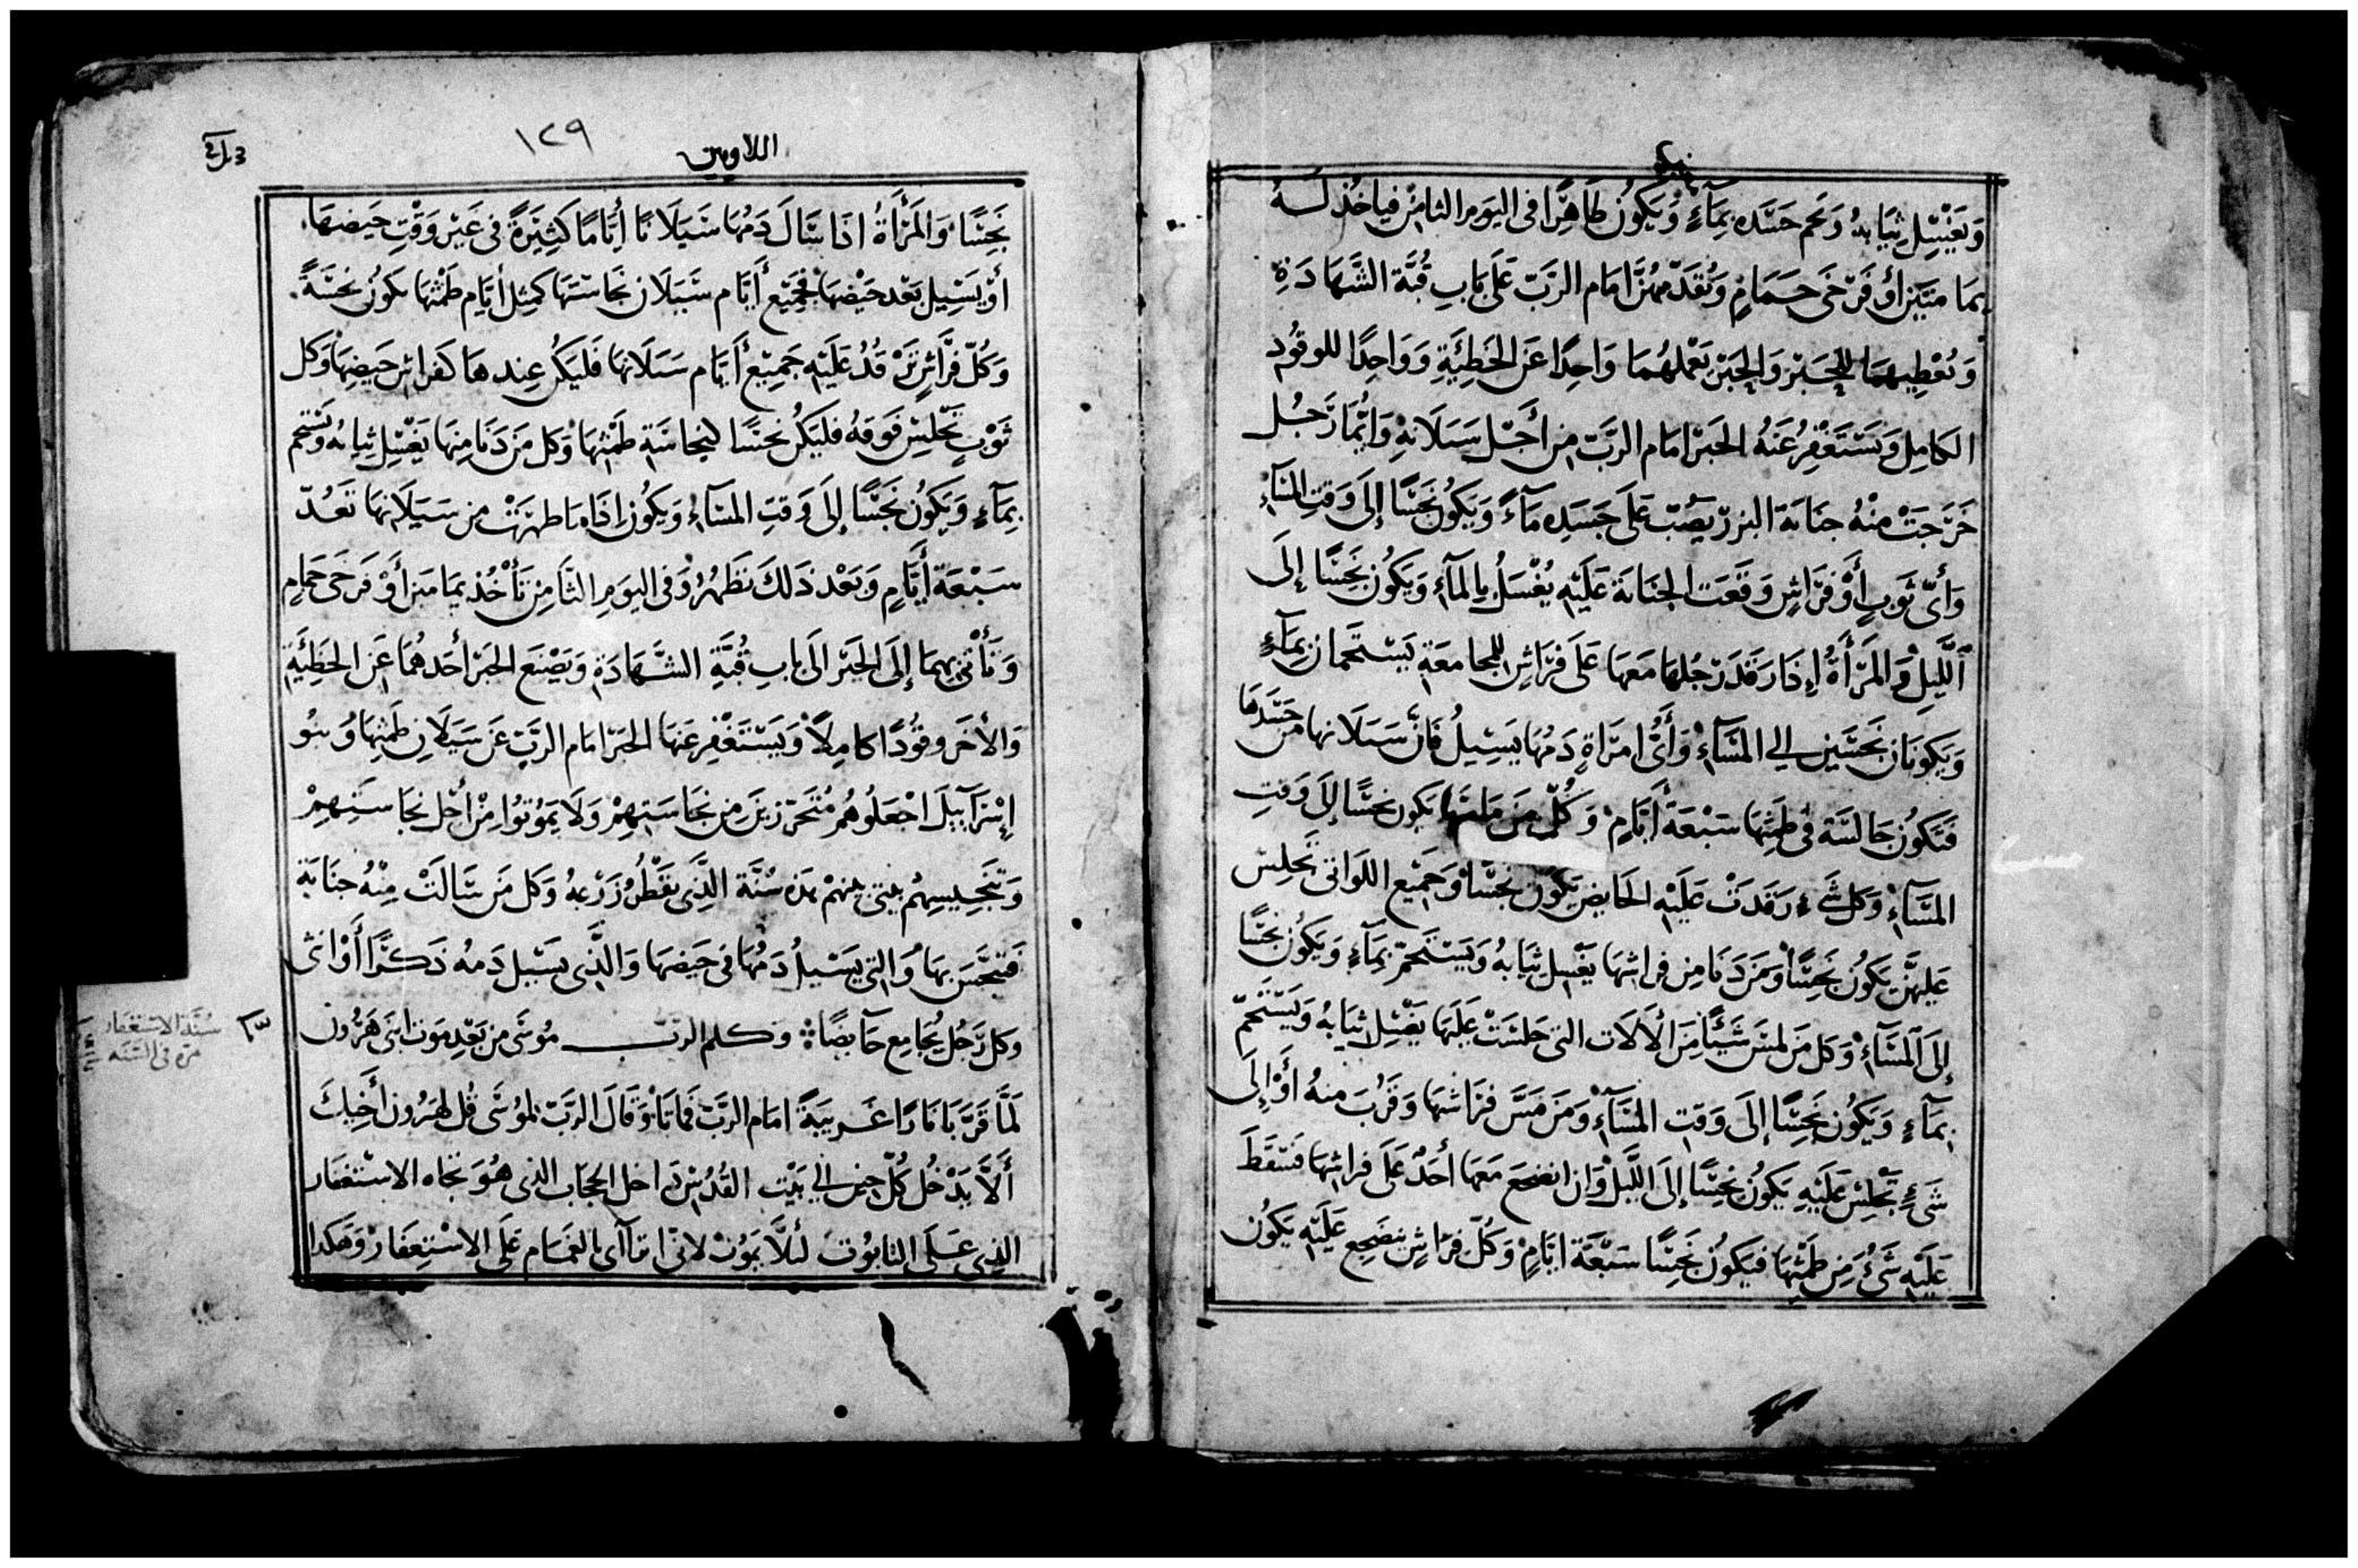 وَيَغْسِل ثِيَابهُ وَيحم جَسَده بِمَآءٍ وَيَكُون طَاهِرًا فى اليَوم الثامن فياخُذ لَهُ
يمَامتَين أو فَرْخَى حَمَامٍ وَيُقَدّمهُمَا امَام الرَبّ عَلَى بَابِ قُبَّة الشَّهَادَةِ
وَيُعْطِيهمَا للحَبْر وَالحَبْر يَعْملهُمَا وَاحِدًا عَن الخَطِئَيةِ وَوَاحِدًا للوقُود
الكامِل وَيَسْتَغْفِرُ عَنهُ الحَبْر امَام الرَبّ من أَجْل سَيَلَانهِ وَايُّمَا رَجُل
خَرَجَتْ مِنْهُ جنَابَة البزر يَصُبّ عَلَى جَسَدِه مَآءً وَيَكُونُ نَجَسًا إلَى وَقتِ المسَآءِ
وَأىّ ثَوبٍ أَوْ فرَاشٍ وَقَعَت الجنَابَة عَلَيْهِ يُغْسَلُ بِالمآءِ وَيَكُون نَجِسًا إلَى
اللَّيلِ وَالمَرْأَةُ إذَا رَقَدَ رَجُلهَا مَعهَا عَلَى فرَاشٍ للجامعَةِ يَسْتَحمَان بِمَآءٍ
وَيَكُونَان نَجسَين الي المسَآءِ وَأَىُّ امرَاةٍ دَمُهَا يَسِيلُ فَانّ سَيَلَانها من جَسَدهَا
فَتَكُونُ جَالسَة فى طَمثِهَا سَبْعَة أَيَّامٍ وَكُلّ مَن يلمسَهَا يَكون نجسًا إلَى وَقتِ
المسَآءِ وَكل شَىءٍ رَقَدَتْ عَلَيْهِ الحَايض يَكُون نجسًا وَجَمِيع اللوَاتى تَجلِس
عَليهنَّ يَكُونُ نَجِسًا وَمَن دَنَا مِن فرَاشِهَا يغْسِل ثِيَابهُ وَيَسْتَحمّ بِمَآءٍ وَيَكُونُ نَجسًا
إلَى المسَآءِ وَكل مَن لمسَ شَيْئًا مِنَ الآلَات التى جَلسَتْ عَلَيهَا يَغْسِل ثيَابهُ وَيَسْتَحمّ
بِمَآءٍ وَيَكُونُ نَجِسًا إلَى وَقتِ المسَآءِ وَمَن مَسَّ فرَاشهَا وَقَرُبَ منهُ أَوْ إلَى
شَىءٍ تَجْلِسُ عَلَيْهِ يَكُونُ نَجِسًا إلَى اللَّيل وَان انضجعَ مَعهَا أَحَدٌ عَلَى فراشِهَا فسَقَطَ
عَلَيْهِ شَىءٌ مِن طَمْثِهَا فَيَكُونُ نَجِسًا سَبْعَة ايَّامٍ وَكُلّ فرَاشٍ ينضَجِع عَلَيْهِ يَكُون
اللاويين
١٢٩
نَجِسًا وَالمَرْأَةُ اذَا سَالَ دَمُهَا سَيَلَانًا أَيَّامًا كَثِيرَةً فى غَيْر وَقْتِ حَيضهَا
أوْ يَسِيل بَعْد حَيْضهَا فجَمِيع أَيَّام سَيَلَان نجَاسَتهَا كَمثِل أيَّام طَمْثهَا تكونُ نجسَةً
وَكُلّ فرَاشٍ تَرْقُدُ عَلَيْهِ جَمِيع أَيَّام سَيَلَانهَا فَليَكُن عِندهَا كَفراش حَيضهَا وَكل
ثَوْبٍ تَجْلسُ فَوقهُ فليَكن نجسًا لنجَاسَة طَمْثهَا وَكل مَن دَنَا مِنهَا يَغْسِل ثِيابهُ وَيَسْتحم
بِمَآءٍ وَيَكُون نَجسًا إلَى وَقتِ المسَآءِ وَيَكُون إذَا مَا طهرَتْ مِن سَيَلَانهَا تَعُدّ
سَبْعَة أَيَّامٍ وَبَعْد ذَلكَ تَطْهُرُ وَفى اليَومِ الثَّامِن تَأْخُذ يمَامتَين أَوْ فَرخَى حَمَامٍ
وَتَأْتى بهِمَا إلَى الحَبْر الَى باب قُبَّةِ الشَّهَادَةِ وَيَصْنَع الحَبْر أَحَدهُمَا عَن الخَطِئَيةِ
وَالأخَر وقُودًا كامِلاً وَيَسْتَغْفِر عَنهَا الحَبْر امَام الرَبّ عَن سَيَلَان طَمثِهَا وَبنُو
إسْرَآئِيلَ اجْعَلُوهُم مُتَحَرّزينَ مِن نجَاسَتِهِمْ وَلَا يَمُوتُوا مِنْ أَجْل نجَاسَتِهِمْ
وَتَنجِيسِهِم بيتى بينهم هَذِه سُنَّة الَّذِى يَقْطُرُ زَرْعهُ وَكل مَن سَالَتْ مِنْهُ جنَابَة
فَتَنَجَّسَ بهَا وَالتى يَسْيلُ دَمُهَا فى حَيضهَا وَالَّذِى يَسْيل دَمهُ ذَكرًا أَوْ انثى
وَكل رَجُلٍ يُجَامِع حَآيضًا وكلم الربّ مُوسَى من بَعْدِ مَوت ابنَى هَرُون
لَمَّا قَرَّبَا نَارًا غَرِيبَةً امَام الرَبّ فَمَاتَا وَقَالَ الرَبّ لمُوسَى قُل لهَرُون أَخِيكَ
أَلَّا يَدْخُل كُلّ حين الي بَيْتِ القُدُسْ دَاخل الحجَاب الذى هُوَ تجَاه الاسْتغفَار
الذى عَلَى التابوُت لئلَّا يَمُوت لانّى اتَرَآاى بالغمَام عَلَى الاسْتِغفَارْ وَهَكذا
سُنَّة الاستغفار
مرّة فى السَنَه